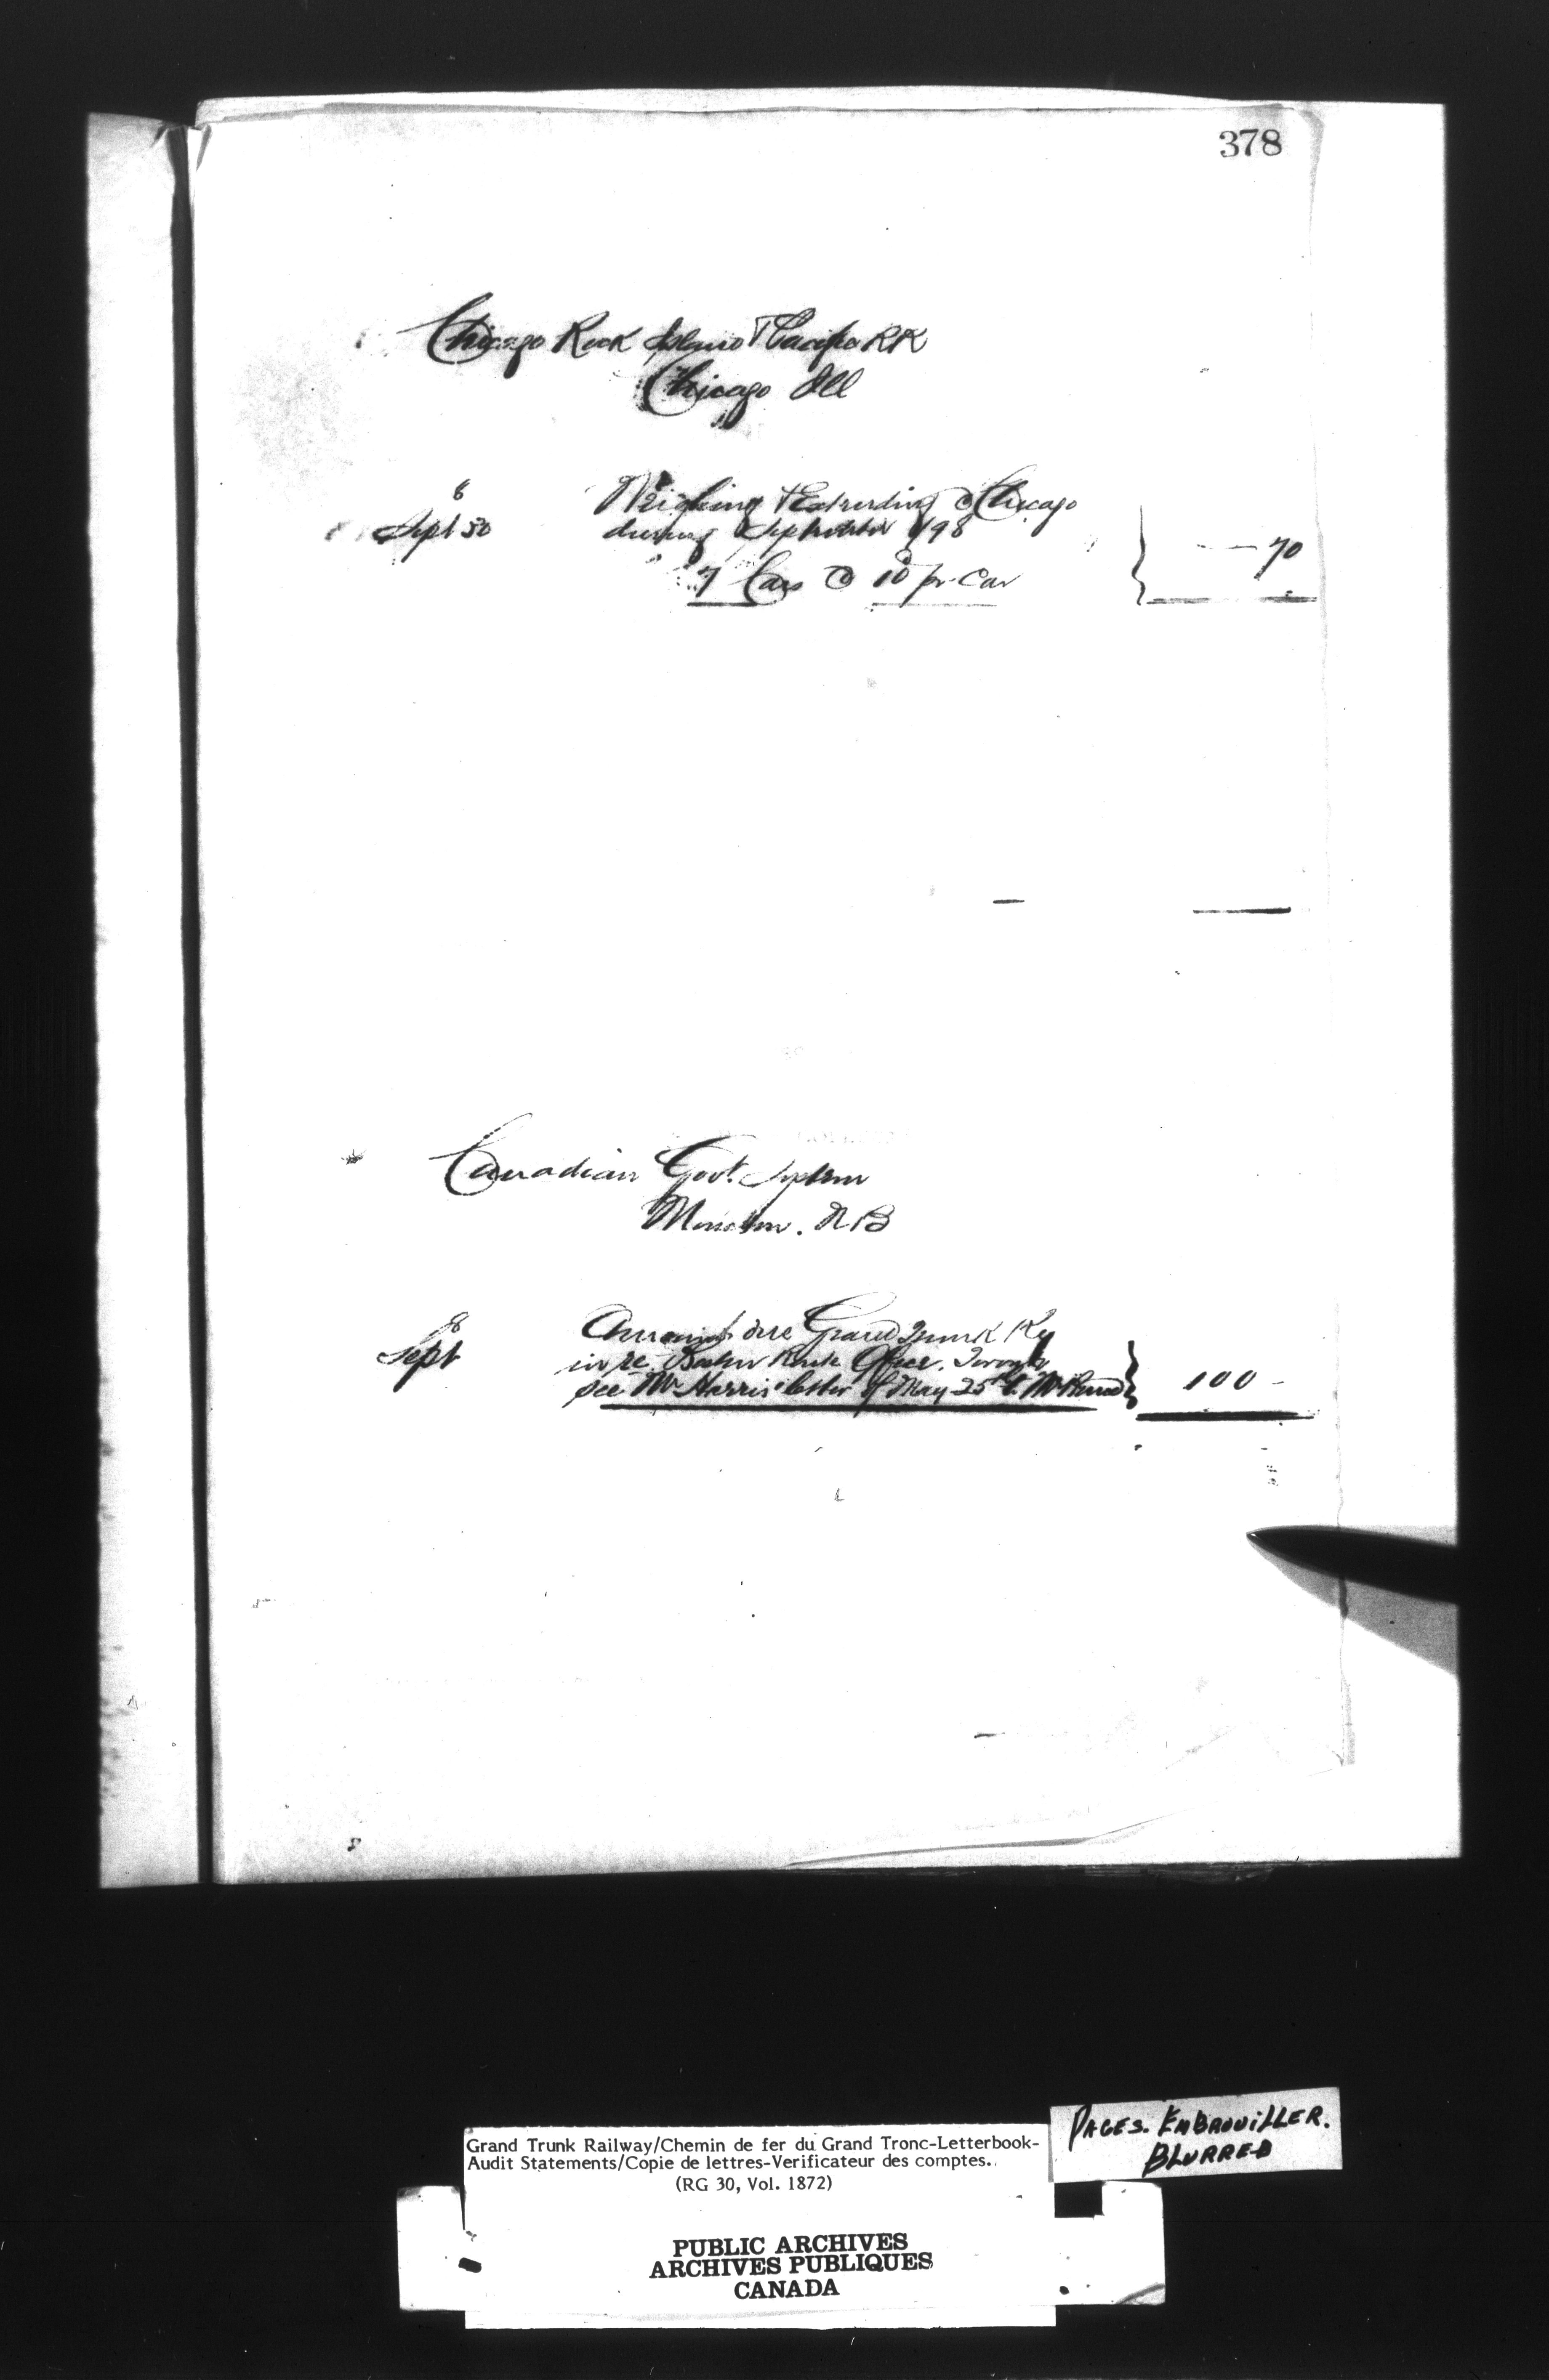 378
Chicago Rock Island & Pacific RR
Chicago Ill
8
Sept 30
Weighing & Extending @ Chicago
during September 1/98
7 Cars @ 10 pr Car
70
Canadian Govt. System
Moncton. N B
8
Sept
Amount due Grand Trunk Ry
in re Office. Toronto
see Mr Harris' letter of May 25th to Mr
100 -
PAGES. EMBROUILLER.
BLURRED
Grand Trunk Railway/Chemin de fer du Grand Tronc-Letterbook-
Audit Statements/Copie de lettres-Verificateur des comptes.
(RG 30, Vol. 1872)
PUBLIC ARCHIVES
ARCHIVES PUBLIQUES
CANADA